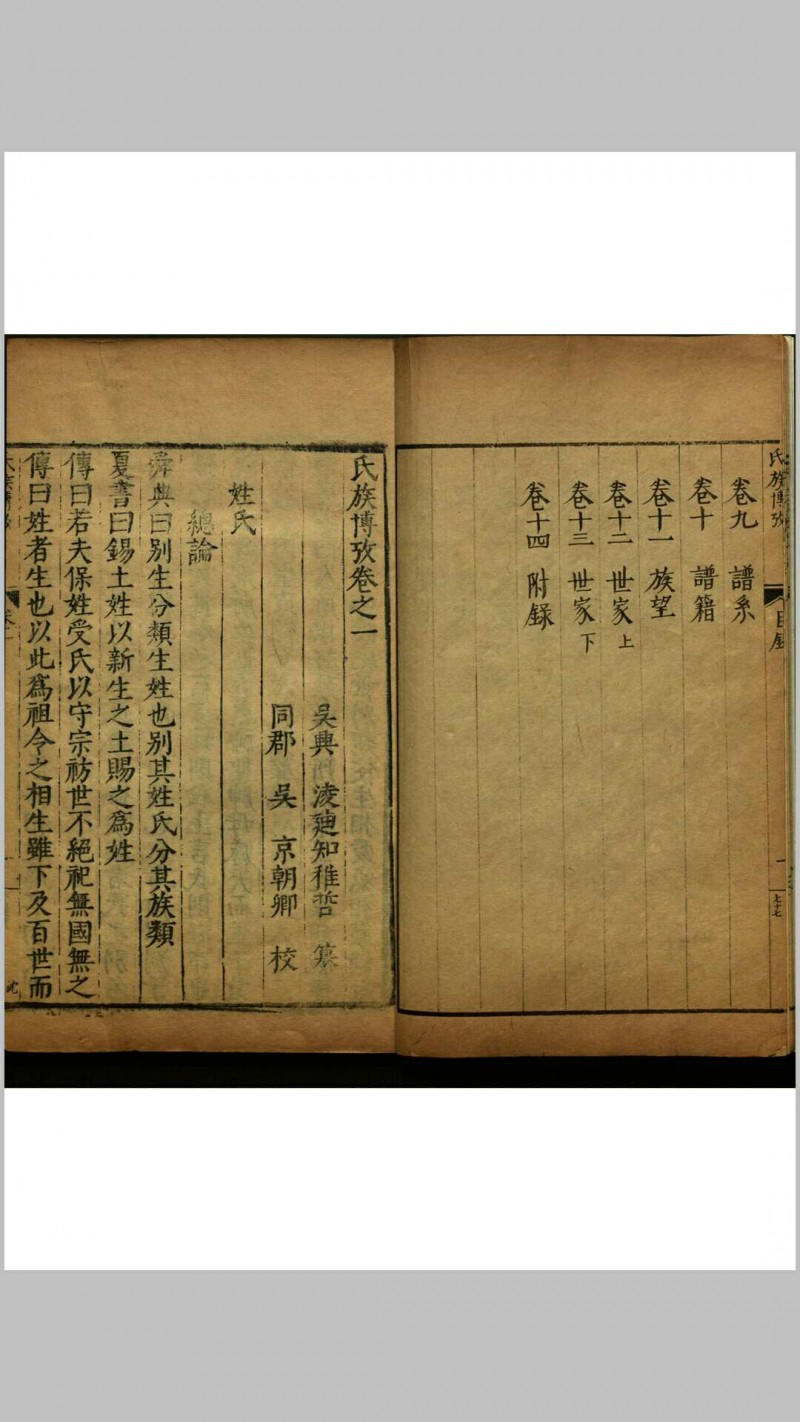 氏族博攷 目録
卷九 譜系
卷十 譜籍
卷十一 族望
卷十二 世家上
卷十三 世家下
卷十四 附録
氏族博攷卷之一
吳興 淩迪知稚哲 纂
同郡 吳 京朝卿 校
姓氏
總論
舜典曰别生分類生姓也别其姓氏分其族類
夏書曰錫土姓以新生之土賜之爲姓
傳曰若夫保姓受氏以守宗祊世不絕祀無國無之
傳曰姓者生也以此爲祖令之相生雖下及百世而